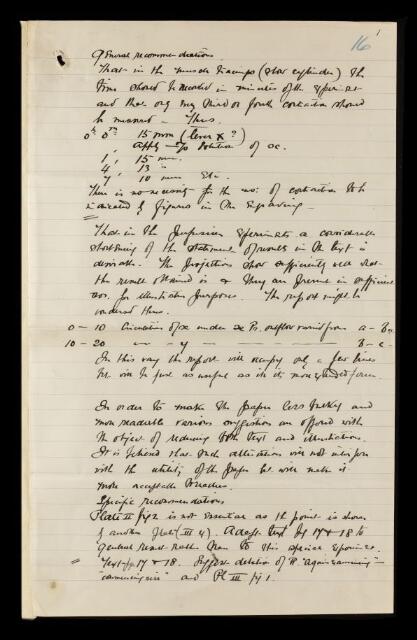 16
General recommendations.
That in the muscle tracings (slow cylinder) the
time should be recorded in minutes of the experiment
and that only every third or fourth contraction should
be measured – Thus.
0h 0m 15 mm (lever x ?)
apply solution of
1, 15 mm.
4, 13 "
7, 10 mm etc.
There is no necessity for the no. of contraction to be
indicated by figures in the engraving –
That in the perfusion experiments a considerable
shortening of the statement of results in the text is
desirable. The
the result obtained is & they are present in sufficient
nos. for illustration purposes. The report might be
rendered thus.
0 – 10 Circulation of under Ps. outflow varied from a – B
10 – 20 — — y — — — B – c
In this way the report will occupy only a few lines
but will be just as useful as in its more extended form.
In order to make the paper less bulky and
more readable various suggestions are offered with
the object of reducing both text and illustrations.
It is believed that such alterations will not interfere
with the utility of the paper but will make it
more acceptable to readers.
Specific recommendations
Plate II fig 2 is not essential as the point is shown
by another plate (III 4). Adapt text pg 17 & 18 to
general result rather than to this special experiment.
Text pp 17 & 18. Suggest deletion of P. "again examining" –
"commencing" and Pl III fig 1.